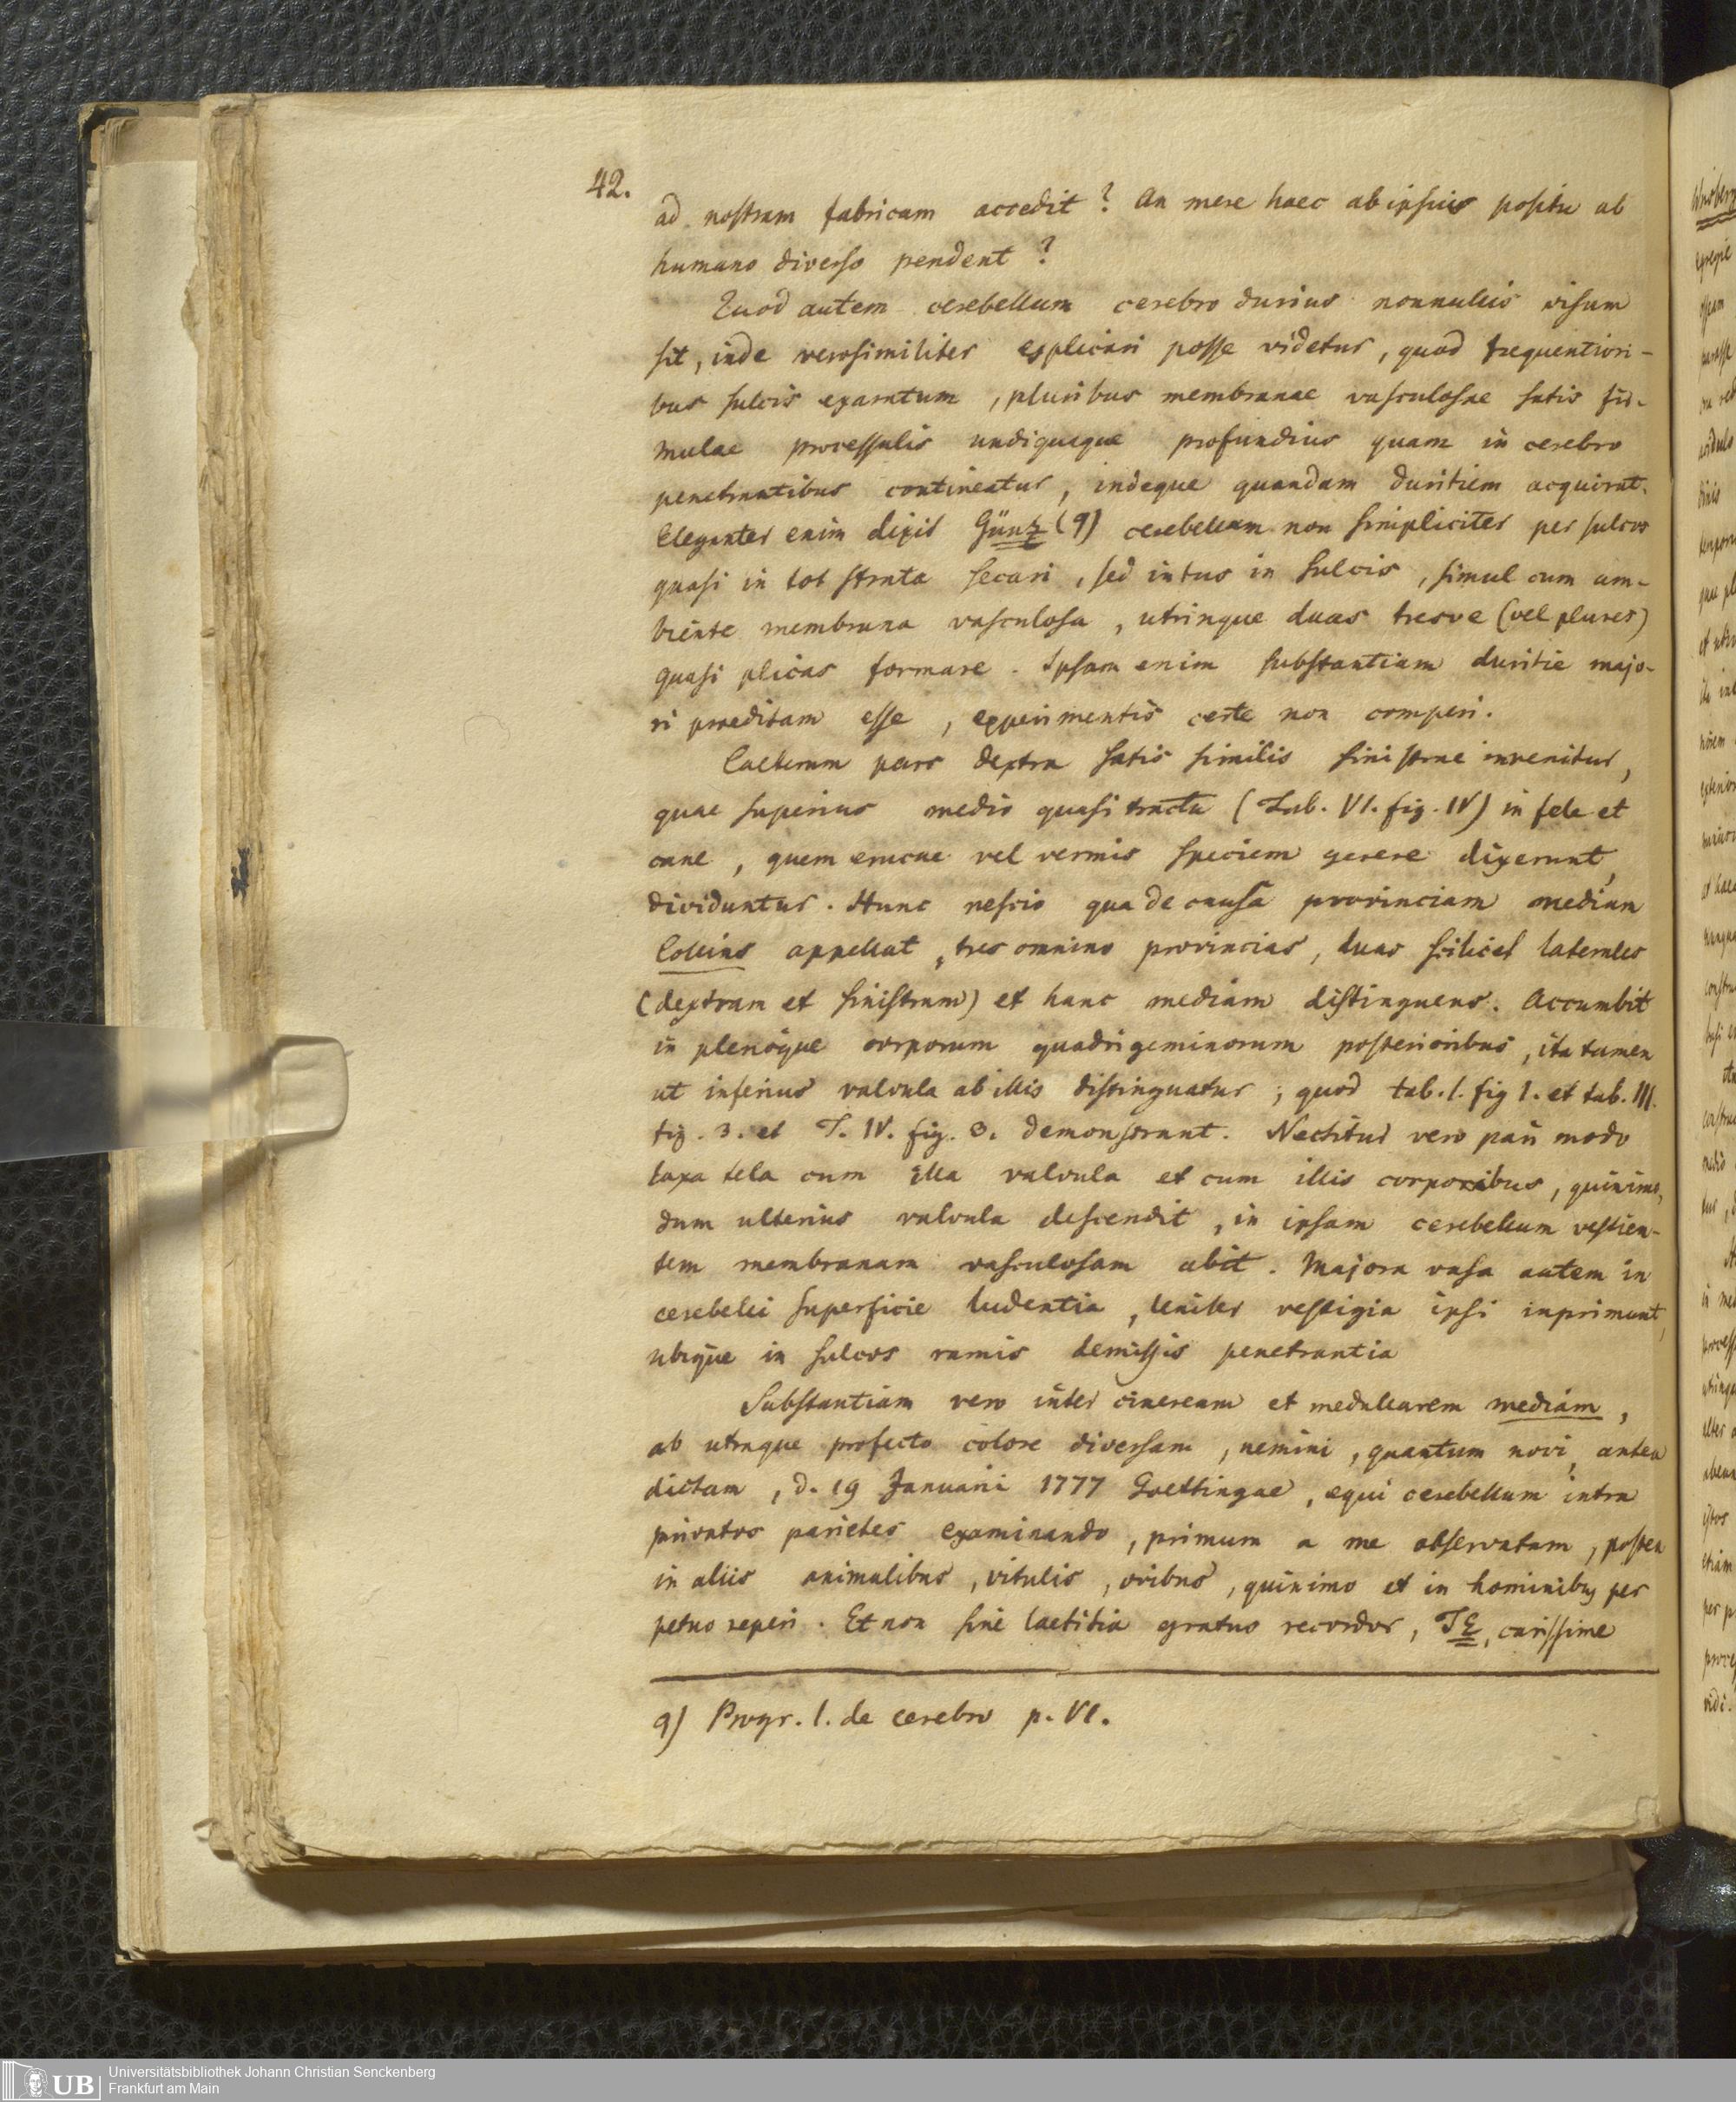 42.
ad nostram fabricam accedit? An mere haec ab ipsius positu ab
humano diverso pendent?
Quod autem cerebellum cerebro durius nonnullis visum
sit, inde verosimiliter explicari posse videtur, quod frequentiori-
bus sulcis exaratum, pluribus membranae vasculosae satis fir-
mulae processulis undiquaque profundius quam in cerebro
penetrantibus contineatur, indeque quandam duritiem acquirat.
Eleganter enim dixit Günz (q) cerebellum non simpliciter per sulcos
quasi in tot strata secari, sed intus in sulcis, simul cum am-
biente membrana vasculosa, utrinque duas tresve (vel plures)
quasi plicas formare. Ipsam enim substantiam duritie majo-
ri praeditam esse, experimentis certe non comperi.
Caeterum pars dextra satis similis sinistrae invenitur,
quae superius medio quasi tractu (Tab. VI. fig. IV) in fele et
cane, quem erucae vel vermis speciem gerere dixerunt,
dividuntur. Hunc nescio qua de causa provinciam mediam
Collins appellat, tres omnino provincias, duas scilicet laterales
(dextram et sinistram) et hanc mediam distinguens. Accumbit
in plerisque corporum quadrigeminorum posterioribus, ita tamen
ut inferius valvula ab illis distinguatur; quod tab. I. fig 1. et tab. III.
fig. 3. et T. IV. fig. 3. demonstrant. Nectitur vero pari modo
laxa tela cum illa valvula et cum illis corporibus, quinimo,
dum ulterius valvula descendit, in ipsam cerebellum vestien-
tem membranam vasculosam abit. Majora vasa autem in
cerebelli superficie ludentia, leniter vestigia ipsi inprimunt,
ubique in sulcos ramis demissis penetrantia
Substantiam vero inter cineream et medullarem mediam,
ab utraque profecto colore diversam, nemini, quantum novi, antea
dictam, d. 19 Januarii 1777 Goettingae, equi cerebellum intra
privatos parietes examinando, primum a me observatam, postea
in aliis animalibus, vitulis, ovibus, quinimo et in hominibus per
petuo reperi. Et non sine laetitia gratus recordor, TE, carissime
q) Progr. I. de cerebro p. VI.
Universitätsbibliothek Johann Christian Senckenberg
Frankfurt am Main
UB